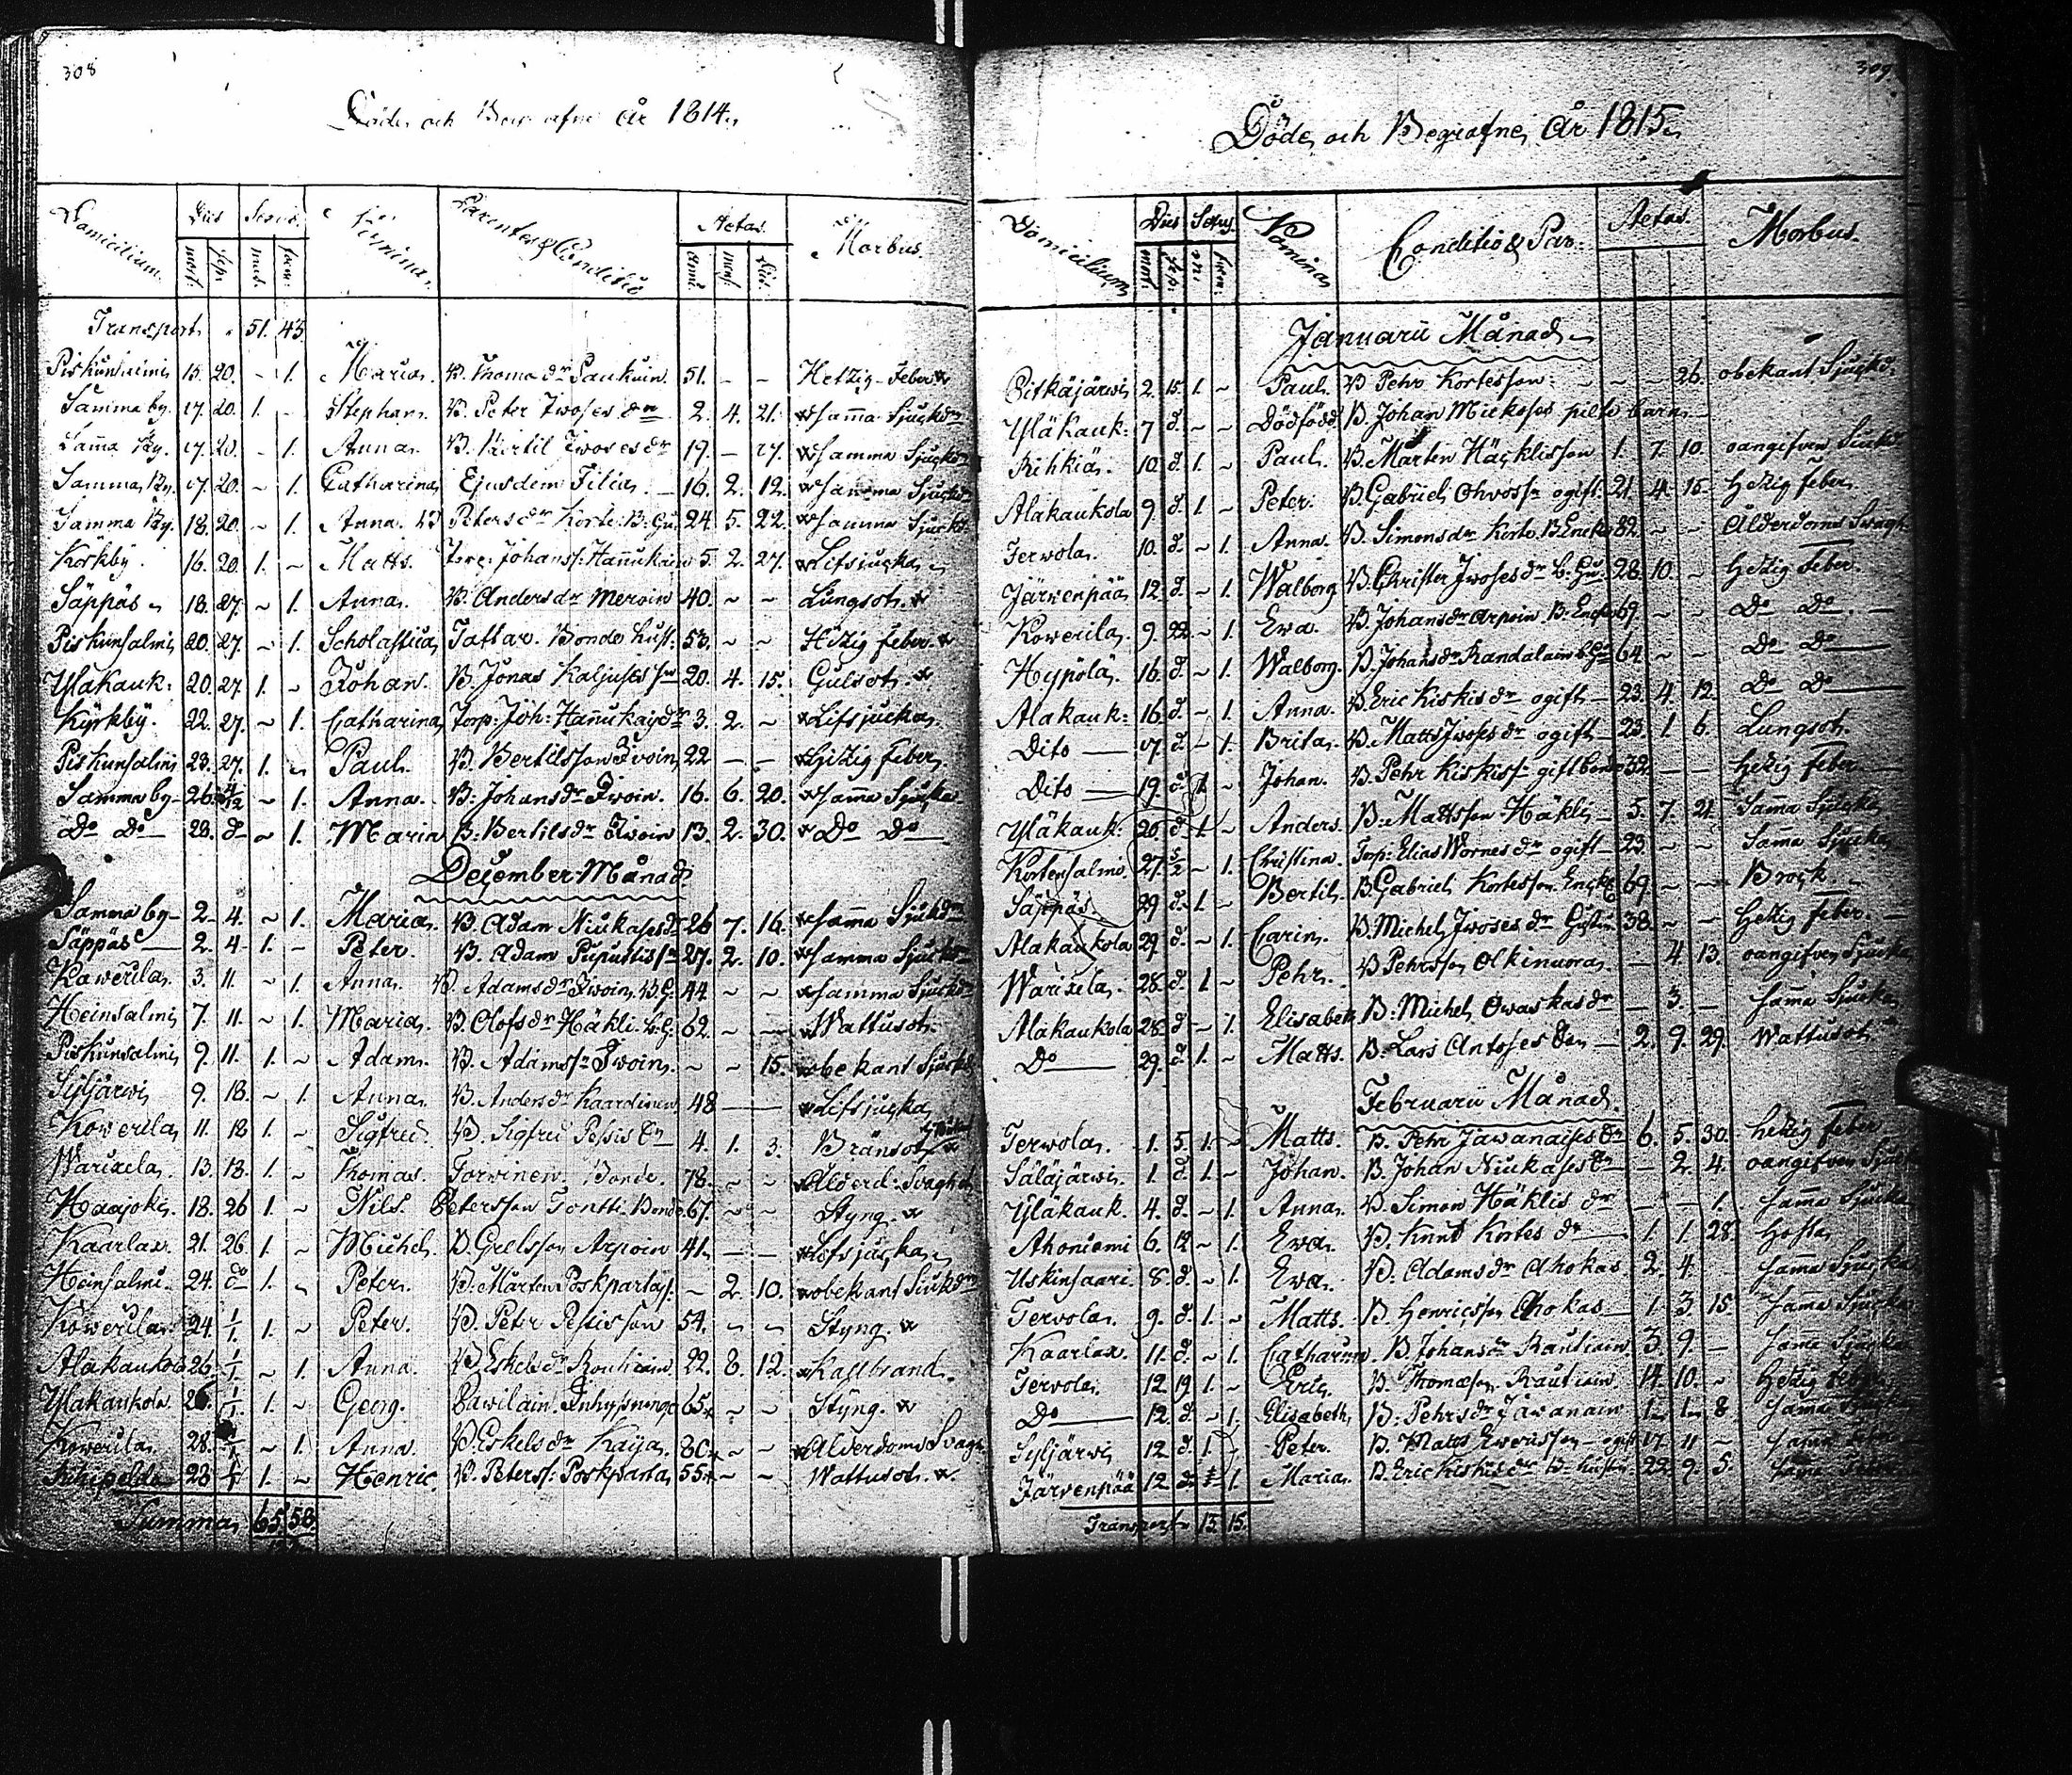 308
Döde och Begrafne år 1814.
Domicilium. Dies Sexus. Nomina. Parentes & Conditio Aetas. Morbus.
mort. sep. mas. foem. anni mens. dies.
Transport 51. 43.
Piskunsalmi 15. 20. - 1. Maria. B. Thoma dr Paukuin. 51. - - Hetzig-Feber
Samma by. 17. 20. 1. - Stephan. B. Peter Iwoses Sn 2. 4. 21. Samma Sjuckdm
Samma By. 17. 20. - 1. Anna. B. Bertil Iwoses dr 19. - 27. Samma Sjuckdm
Samma By. 17. 20. ~ 1. Catharina Ejusdem Filia. 16. 2. 12. Samma Sjuckdm
Samma By. 18. 20. - 1. Anna. Peters dr Korte. B. Gu. 24. 5. 22. Samma Sjuckd
Körkby. 16. 20. 1. ~ Matts. Torp: Johanss: Hannukain 5. 2. 27. Lifsjucka
Säppäs 18. 27. ~ 1. Anna. B. Anders dr Meroin 40. ~ ~ Lungsot.
Piskunsalmi 20. 27. ~ 1. Scholastica Tattar. Bonde Hust: 53. ~ ~ Hitzig feber.
Yläkauk: 20. 27. 1. ~ Johan. B. Jonas Kaljuses sn 20. 4. 15. Gulsot.
Kyrkby. 22. 27. ~ 1. Catharina Torp: Joh: Hannukay dr 3. 2. - Lifsjucka.
Piskunsalmi 23. 27. 1. ~ Paul. B. Bertilsson Iwoin 22 - - Hitzig feber
Samma by 26. 4/12 ~ 1. Anna. B: Johans dr Iwoin. 16. 6. 20. Sama Sjucka
Do Do 28. d ~ 1. Maria B. Bertils dr Iwoin 13. 2. 30. Do Do
December Månad.
Samma by 2. 4. ~ 1. Maria. B. Adam Niukases dr 26 7. 16. Sama Sjuckdm
Säppäs 2. 4. 1. - Peter. B. Adam Puputtis sn 27. 2. 10. Samma Sjuckdm
Kawerila. 3. 11. - 1. Anna. B. Adams dr Iwoin. B. G. 44. ~ ~ Samma Sjuckdm
Heinsalmi 7. 11. ~ 1. Maria. B. Olofs dr Häkli. b. G: 62. ~ - Wattusot.
Piskunsalmi 9. 11. 1. ~ Adam. B. Adamss: Iwoin. ~ ~ 15. obekant Sjuckd
Syljärwi 9. 18. - 1. Anna. B. Anders dr Kaardinen 48 - - Lifsjucka
Kowerila 11. 18 1. ~ Sigfred. B. Sigfred Pessis Sn 4. 1. 3. Bränsot
Warixela. 13. 18. 1. ~ Thomas. Torwinen. Bonde. 78. ~ ~ Alderd: Svaghet
Haajoki. 18. 26 1. ~ Nils. Petersson Tontti. Bonde. 67. ~ ~ Styng.
Kaarlax. 21. 26 1. ~ Michel. B. Grelsson Arpoin 41. - - Lifsjucka
Heinsalmi. 24. do 1. ~ Peter. B. Mårten Poskpartas: ~ 2. 10. obekant Siuckdm
Kowerila. 24. 1/1. 1. ~ Peter. B. Peter Pessisson 54. ~ ~ Styng.
Alakaukola 26. 1/1 ~ 1. Anna. B. Eskels dr Routiain. 22. 8. 12. Kallbrand.
Yläkaukola. 26. 1/1. 1. ~ Georg. Pawilain. Inhysninge 65. ~ ~ Styng.
Kowerila. 28. ~ 1. Anna. B. Eskels dr Kaija. 80. ~ ~ Alderdoms Svagh.
28. 1. ~ Henric. B. Peterss: Poskparta 55. ~ ~ Wattusot.
Summa, 65. 58.
309.
Döde och Begrafne År 1815.
Domicilium Dies Sexus. Nomina Conditio & Par: Aetas. Morbus.
mort. sep. foem:
Januarii Månad
Pitkäjärwi 2. 15. 1. ~ Paul. B. Pehr Kortesson - - 26. obekant Sjuckd.
Yläkauk: 7 d. ~ ~ Dödfödd B. Johan Mickoses barn
Rihkiä. 10. d. 1. ~ Paul. B. Mårten Häcklisson 1. 7. 10. oangifven Siuckd
Alakaukola 9. d. 1 ~ Peter. B. Gabriel Ohvoss: ogift. 21. 4. 15. Hetzig feber.
Terwola. 10. d. ~ 1. Anna. B. Simons dr Korte. B. Enka 82. - - Ålderdoms Swagh
Järwenpää 12. d. ~ 1. Walborg B. Christer Iwoses dr b. Gu. 28. 10. ~ Hetzig Feber.
Kowerila. 9. 22. ~ 1. Ewa. B. Johans dr Arpoin B. Enka 69. ~ ~ Do Do
Hypölä. 16. d. ~ 1. Walborg. B. Johans dr Randalain b. Gu 64. ~ ~ Do Do
Alakauk: 16. d. - 1. Anna. B. Eric Kiskis dr ogift 23. 4. 12. Do Do
Dito 17 d. ~ 1. Brita. B. Matts Iwoses dr ogift 23. 1. 6. Lungsot.
Dito 19. d. 1 ~ Johan. B. Pehr Kiskiss: gift bonde 32. - - Hetzig feber
Yläkauk: 26. d. 1. ~ Anders. B: Mattsson Häkli 5. 7. 21. Sama Sjucka
Kortensalmi. 27. 5/2 - 1. Christina. Torp: Elias Wornes dr ogift 23. ~ - Sama Sjucka
Säppäs 29 d. 1. ~ Bertil. B. Gabriel Kortesson. Enck. 69. ~ - Brock.
Alakaukola 29. d. ~ 1. Carin. B. Michel Iwoses dr Gift 38. ~ ~ Hetzig feber.
Warixela. 28. d. 1 ~ Pehr. B. Pehrsson Olkinuora. - 4. 13. oangifven Sjucka
Alakaukola 28. d. - 1. Elisabet B: Michel Owaskas dr - 3. - sama Sjucka
Do 29. d. 1. ~ Matts. B. Lars Antoses Son 2. 9. 29. Wattusot.
Februarii Månad.
Terwola. 1. 5. 1. ~ Matts. B. Pehr Jawanaises Sn 6. 5. 30. hetzig feber
Säläjärwi. 1. d. 1. ~ Johan. B. Johan Niukases Sn - 2. 4. oangifven Sjuck
Yläkauk. 4. d. ~ 1. Anna. B. Simon Häklis dr - - 1. sama Sjucka
Ahoniemi 6. 12 ~ 1. Ewa. B. Knut Kortes dr 1. 1. 28. Hosta
Uskinsaari. 8. d. ~ 1. Ewa. B. Adams dr Ahokas 2. 4. sama Sjucka
Terwola. 9. d. 1. ~ Matts. B. Henricsson Ahokas 1. 3. 15. sama Sjucka
Kaarlax 11. d. ~ 1. Catharina. B. Johans dr Rautiain. 3. 9. ~ sama Sjucka
Terwola. 12 19 1. ~ Eric. B. Thomasson Rautiain. 14. 10. ~ Hetzig feber
Do 12. d. ~ 1. Elisabeth. B: Pehrs dr Jawanain 1. 1. 8. sama Sjucka
Syljärwi 12 d. 1. Peter. B. Matts Ewerisson ogift 17. 11 - sama
Järwenpää 12. d. 1. Maria. B. Eric Kiskis dr B: hustru 22. 9. 5. sama
Transport 15. 15.